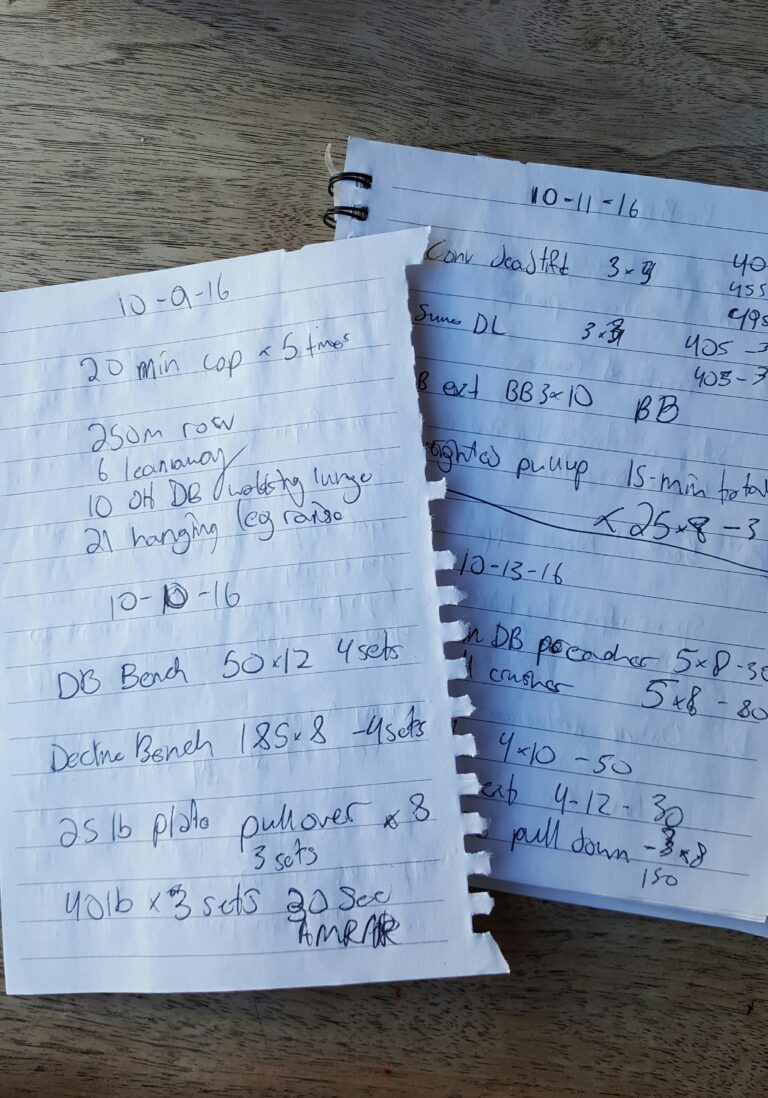 10-9-16
20 min cap x 5 times
250m row
6 leanaway
10 OH DB walking lunge
21 hanging leg raise
10-10-16
DB Bench 50x12 4 sets
Decline Bench 185x8 -4sets
25 lb plate pullover x 8
3 sets
40lb x 3 sets 30 Sec
AMRAP
10-11-16
Conv deadlift 3x
455
495
Sumo DL 3x3 405 -3
405-3
ext BB 3x10 BB
pullup 15-min total
x 25x8 -3
10-13-16
DB 5x8-30
crusher 5x8 - 80
4x10 -50
ext 4-12-30
pull down -3x8
150